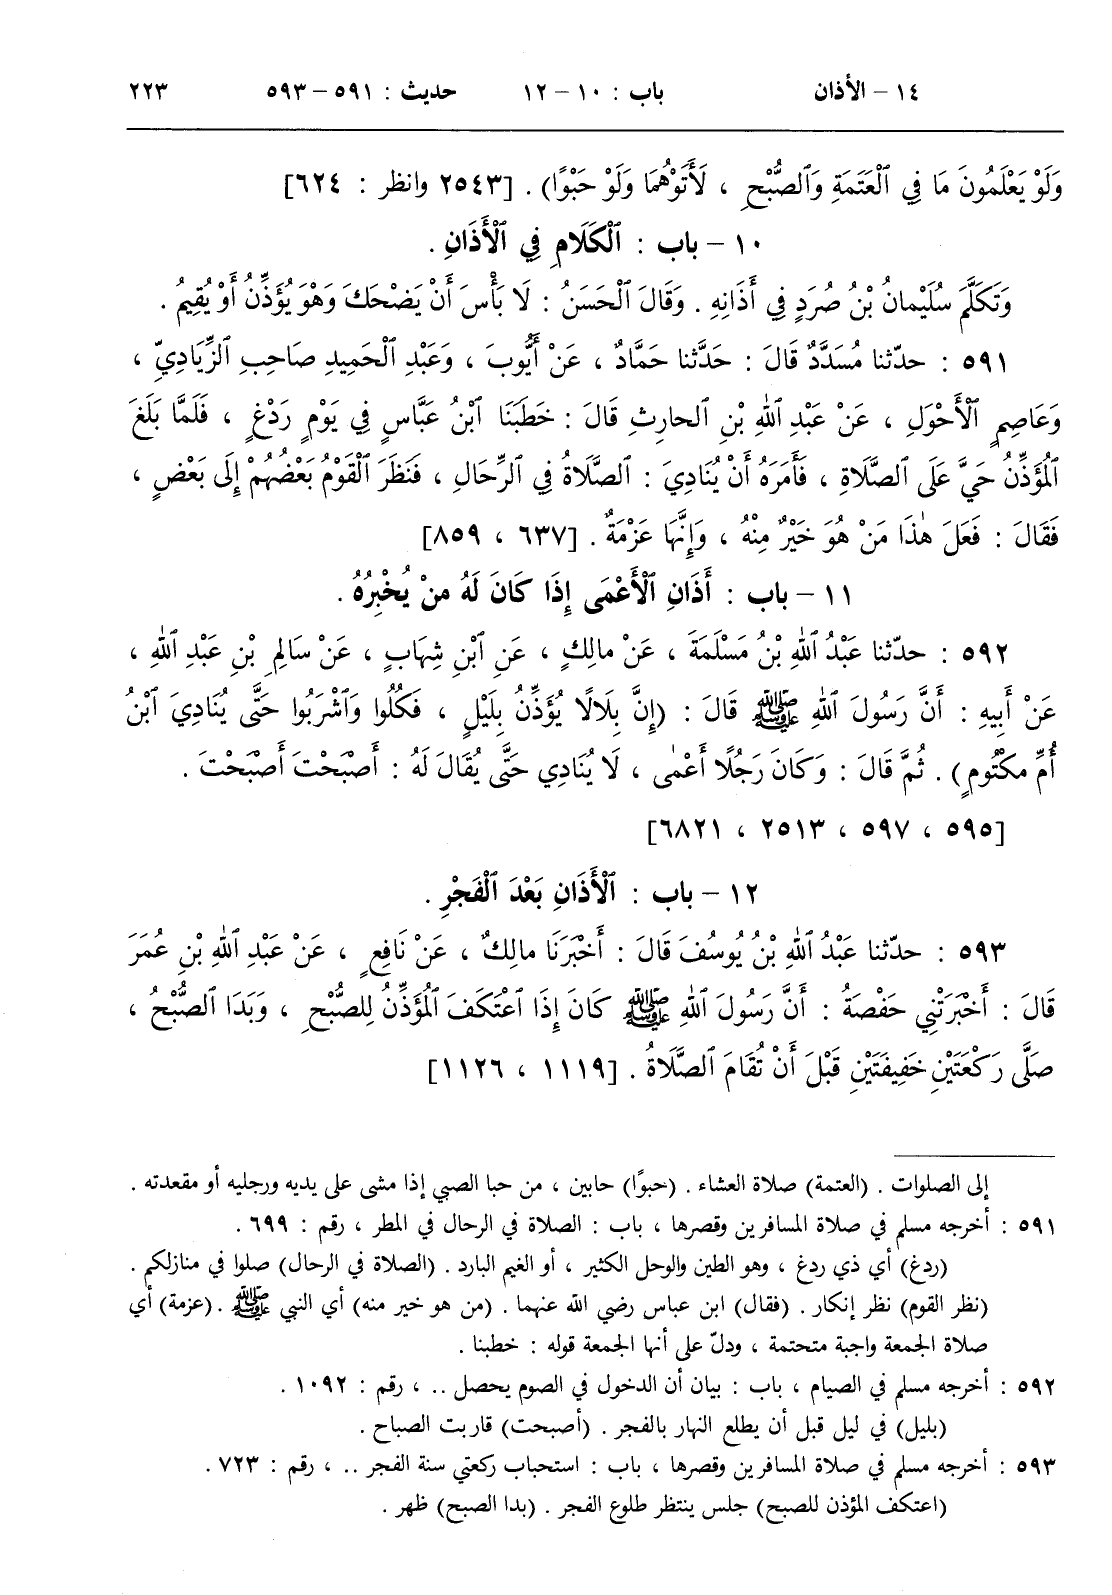 ١٤ – الأذان باب : ١٠ – ١٢ حديث : ٥٩١ – ٥٩٣ ٢٢٣
وَلَوْ يَعْلَمُونَ مَا فِي ٱلْعَتَمَةِ وَٱلصُّبْحِ ، لَأَتَوْهُمَا وَلَوْ حَبْوًا) . [٢٥٤٣ وانظر : ٦٢٤]
١٠ – باب : ٱلْكَلَامِ فِي ٱلْأَذَانِ .
وَتَكَلَّمَ سُلَيْمانُ بْنُ صُرَدٍ فِي أَذَانِهِ . وَقَالَ ٱلْحَسَنُ : لَا بَأْسَ أَنْ يَضْحَكَ وَهْوَ يُؤَذِّنُ أَوْ يُقِيمُ .
٥٩١ : حدّثنا مُسَدَّدٌ قَالَ : حَدَّثنا حَمَّادٌ ، عَنْ أَيُّوبَ ، وَعَبْدِ ٱلْحَمِيدِ صَاحِبِ ٱلزِّيَادِيِّ ،
وَعَاصِمٍ ٱلْأَحْوَلِ ، عَنْ عَبْدِ ٱللهِ بْنِ ٱلحارِثِ قَالَ : خَطَبَنَا ٱبْنُ عَبَّاسٍ فِي يَوْمٍ رَدْغٍ ، فَلَمَّا بَلَغَ
ٱلْمُؤَذِّنُ حَيَّ عَلَى ٱلصَّلَاةِ ، فَأَمَرَهُ أَنْ يُنَادِيَ : ٱلصَّلَاةُ فِي ٱلرِّحَالِ ، فَنَظَرَ ٱلْقَوْمُ بَعْضُهُمْ إِلَى بَعْضٍ ،
فَقَالَ : فَعَلَ هٰذَا مَنْ هُوَ خَيْرٌ مِنْهُ ، وَإِنَّهَا عَزْمَةٌ . [٦٣٧ ، ٨٥٩]
١١ – باب : أَذَانِ ٱلْأَعْمَى إِذَا كَانَ لَهُ منْ يُخْبِرُهُ .
٥٩٢ : حدّثنا عَبْدُ ٱللهِ بْنُ مَسْلَمَةَ ، عَنْ مالِكٍ ، عَنِ ٱبْنِ شِهَابٍ ، عَنْ سَالِمِ بْنِ عَبْدِ ٱللهِ ،
عَنْ أَبِيهِ : أَنَّ رَسُولَ ٱللهِ ﷺ قَالَ : (إِنَّ بِلَالًا يُؤَذِّنُ بِلَيْلٍ ، فَكُلُوا وَٱشْرَبُوا حَتَّى يُنَادِيَ ٱبْنُ
أُمِّ مَكْتُومٍ) . ثُمَّ قَالَ : وَكَانَ رَجُلًا أَعْمٰى ، لَا يُنَادِي حَتَّى يُقَالَ لَهُ : أَصْبَحْتَ أَصْبَحْتَ .
[٥٩٥ ، ٥٩٧ ، ٢٥١٣ ، ٦٨٢١]
١٢ – باب : ٱلْأَذَانِ بَعْدَ ٱلْفَجْرِ .
٥٩٣ : حدّثنا عَبْدُ ٱللهِ بْنُ يُوسُفَ قَالَ : أَخْبَرَنَا مالِكٌ ، عَنْ نَافِعٍ ، عَنْ عَبْدِ ٱللهِ بْنِ عُمَرَ
قَالَ : أَخْبَرَتْنِي حَفْصَةُ : أَنَّ رَسُولَ ٱللهِ ﷺ كَانَ إِذَا ٱعْتَكَفَ ٱلْمُؤَذِّنُ لِلصُّبْحِ ، وَبَدَا ٱلصُّبْحُ ،
صَلَّى رَكْعَتَيْنِ خَفِيفَتَيْنِ قَبْلَ أَنْ تُقَامَ ٱلصَّلَاةُ . [١١١٩ ، ١١٢٦]
إلى الصلوات . (العتمة) صلاة العشاء . (حبوًا) حابين ، من حبا الصبي إذا مشى على يديه ورجليه أو مقعدته .
٥٩١ : أخرجه مسلم في صلاة المسافرين وقصرها ، باب : الصلاة في الرحال في المطر ، رقم : ٦٩٩ .
(ردغ) أي ذي ردغ ، وهو الطين والوحل الكثير ، أو الغيم البارد . (الصلاة في الرحال) صلوا في منازلكم .
(نظر القوم) نظر إنكار . (فقال) ابن عباس رضي الله عنهما . (من هو خير منه) أي النبي ﷺ . (عزمة) أي
صلاة الجمعة واجبة متحتمة ، ودلّ على أنها الجمعة قوله : خطبنا .
٥٩٢ : أخرجه مسلم في الصيام ، باب : بيان أن الدخول في الصوم يحصل .. ، رقم : ١٠٩٢ .
(بليل) في ليل قبل أن يطلع النهار بالفجر . (أصبحت) قاربت الصباح .
٥٩٣ : أخرجه مسلم في صلاة المسافرين وقصرها ، باب : استحباب ركعتي سنة الفجر .. ، رقم : ٧٢٣ .
(اعتكف المؤذن للصبح) جلس ينتظر طلوع الفجر . (بدا الصبح) ظهر .